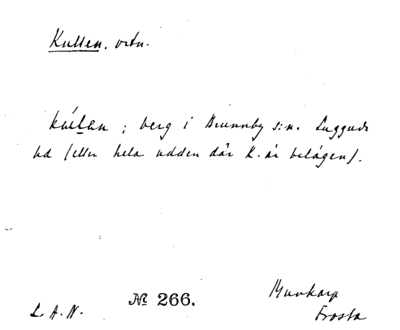 Kullen. ortn.
kúllan ; berg i Brunnby s:n. Luggude
hd (eller hela udden där K. är belägen).
L. A. N.
№ 266.
Munkarp
Frosta